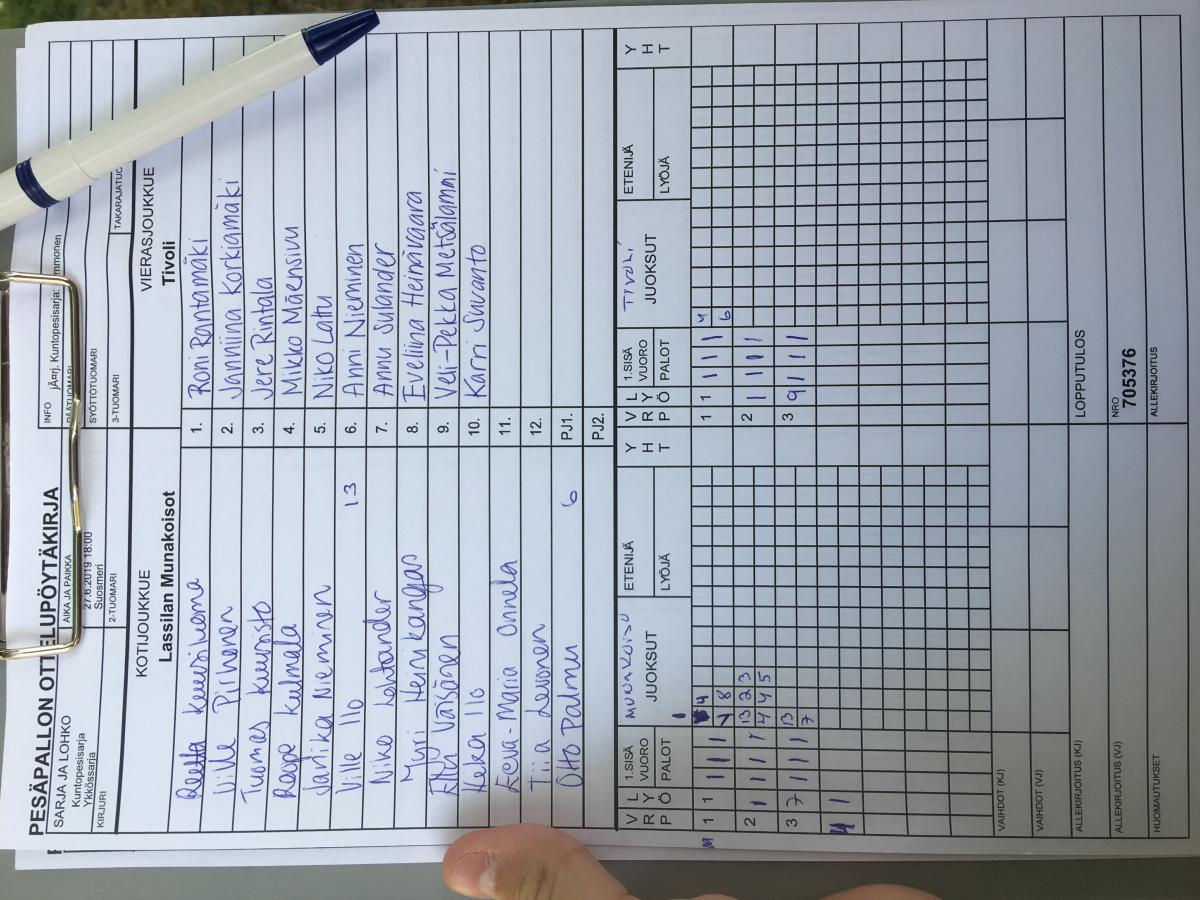 PESÄPALLON OTTELUPÖYTÄKIRJA
SARJA JA LOHKO
Kuntopesisarja
Ykkössarja
AIKA JA PAIKKA
27.6.2019 18:00
Suosmeri
INFO
jÃ¤rj. Kuntopesisarja:
KIRJURI
2-TUOMARI
SYÖTTÖTUOMARI
3-TUOMARI
KOTIJOUKKUE
Lassilan Munakoisot
VIERASJOUKKUE
Tivoli
1. Roni Rantamäki
Ville Pirhonen
2. Janniina Korkiamäki
Tuomas Kuusisto
3. Jere Rintala
Roope Kulmala
4. Mikko Mäensivu
Jarika Nieminen
5. Niko Laitu
Ville Ilo 13
6. Anni Nieminen
Niko Lehtander
7. Annu Sulander
Myri Heinikangas
8. Eveliina Heinävaara
Väisänen
9. Veli-Pekka Metsälammi
Ilo
10. Karri Suvanto
Eeva-Maria Onnela
11.
Tiia Levonen
12.
Otto Palmu 6
PJ1.
PJ2.
VRP
LYÖ
1.SISÄ VUORO
PALOT
MUNAKOISO
JUOKSUT
ETENIJÄ
LYÖJÄ
YHT
VRP
LYÖ
1.SISÄ VUORO
PALOT
TIVOLI
JUOKSUT
ETENIJÄ
LYÖJÄ
YHT
1 1 I I I 4
8
1 1 I I I 4
6
2 1 I I I 13 2 3
4 4 5
2 1 I I I
3 7 I I I 13
7
3 9 I I I
4 1
VAIHDOT (KJ)
VAIHDOT (VJ)
ALLEKIRJOITUS (KJ)
LOPPUTULOS
ALLEKIRJOITUS (VJ)
NRO
705376
HUOMAUTUKSET
ALLEKIRJOITUS